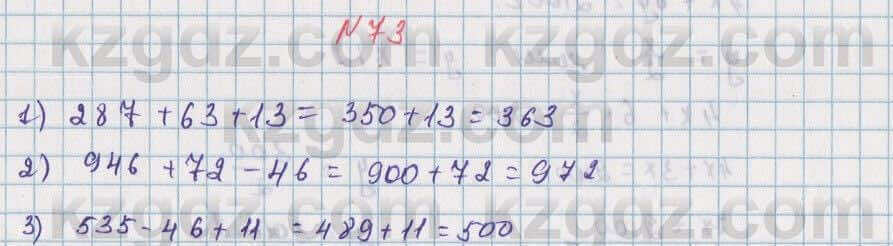 N 73
1) 287 + 63 + 13 = 350 + 13 = 363
2) 946 + 72 - 46 = 900 + 72 = 972
3) 535 - 46 + 11 = 489 + 11 = 500
kzgdz.com